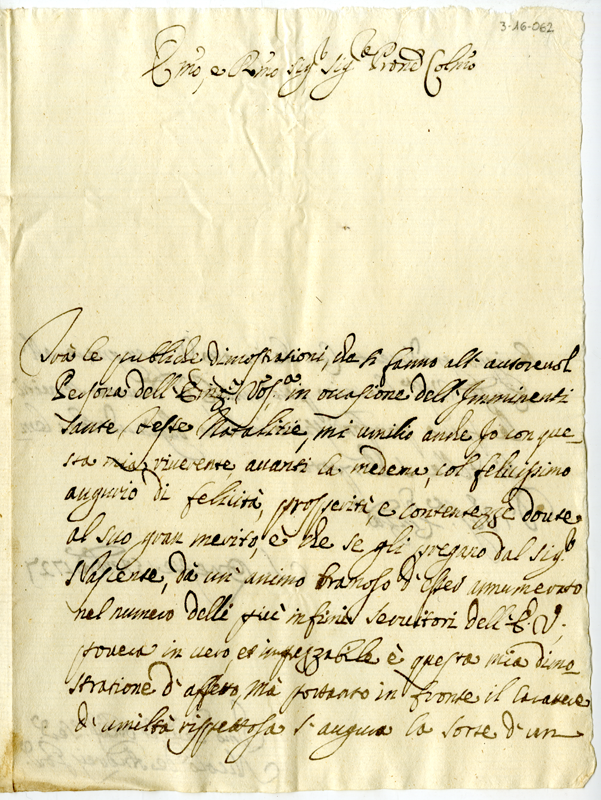 3-16-062
Emo, e Rmo Sigr Sigr Prone Colmo
Trà le publiche dimostrationi, che si fanno all' autorevol
Persona dell' Emza Vosa in occasione dell' Imminenti
Sante Feste Natalitie, mi umilio anche Io con que-
sta mia riverente avanti la medema, col felicissimo
augurio di felicità, prosperità, e contentezze dovute
al suo gran merito, è che se gli pregano dal Sigr
Nascente, dà un' animo bramoso d' esser annumerato
nel numero delli più infimi servitori dell' E. V.
povera in vero, et inprezzabile è questa mia dimo-
stratione d' affetto, mà portanto in fronte il carattere
d' umiltà rispettosa s' augura la sorte d' un